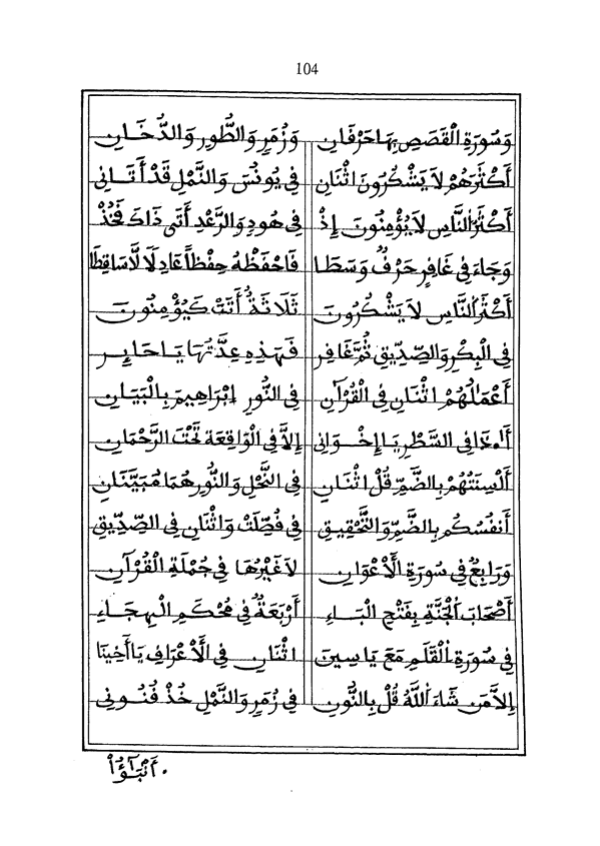 104
وَسُورَةِ الْقَصَصِ بِهَا حَرْفَانِ وَزُمَرٍ وَالطُّورِ وَالدُّخَانِ
أَكْثَرَهُمْ لَا يَشْكُرُونَ اثْنَانِ فِي يُونُسَ وَالنَّمْلِ قَدْ أَتَانِي
أَكْثَرَ النَّاسِ لَا يُؤْمِنُونَ إِذْ فِي هُودٍ وَالرَّعْدِ أَتَى ذَاكَ فَخُذْ
وَجَاءَ فِي غَافِرٍ حَرْفٌ وَسَطَا فَاحْفَظْهُ حِفْظاً عَادِلَا لَا سَاقِطَا
أَكْثَرَ النَّاسِ لَا يَشْكُرُونَ ثَلَاثَةٌ أَتَتْ كَيُؤْمِنُونَ
فِي الْبِكْرِ وَالصِّدِّيقِ ثُمَّ غَافِرِ فَهَذِهِ عِدَّتُهَا يَا حَابِرِ
أَعْمَالُهُمْ اثْنَانِ فِي الْقُرْآنِ فِي النُّورِ إِبْرَاهِيمَ بِالْبَيَانِ
فِي السَّطْرِ يَا إِخْوَانِي إِلَّا فِي الْوَاقِعَةِ تَحْتَ الرَّحْمَانِ
أَلْسِنَتُهُمْ بِالضَّمِّ قُلْ اثْنَانِ فِي النَّحْلِ وَالنُّورِ هُمَا مُبَيَّنَانِ
أَنفُسُكُم بِالضَّمِّ وَالتَّحْقِيقِ فِي فُصِّلَتْ وَاثْنَانِ فِي الصِّدِّيقِ
وَرَابِعٌ فِي سُورَةِ الْأَعْوَانِ لَا غَيْرُهَا فِي جُمْلَةِ الْقُرْآنِ
أَصْحَابَ الْجَنَّةِ بِفَتْحِ الْبَاءِ أَرْبَعَةٌ فِي مُحْكَمِ الْهِجَاءِ
فِي سُورَةِ الْقَلَمِ مَعَ يَاسِينَ اثْنَانِ فِي الْأَعْرَافِ يَا أَخِينَا
إِلَّا مَن شَاءَ اللَّهُ قُلْ بِالنُّونِ فِي زُمَرٍ وَالنَّمْلِ خُذْ فُنُونِي